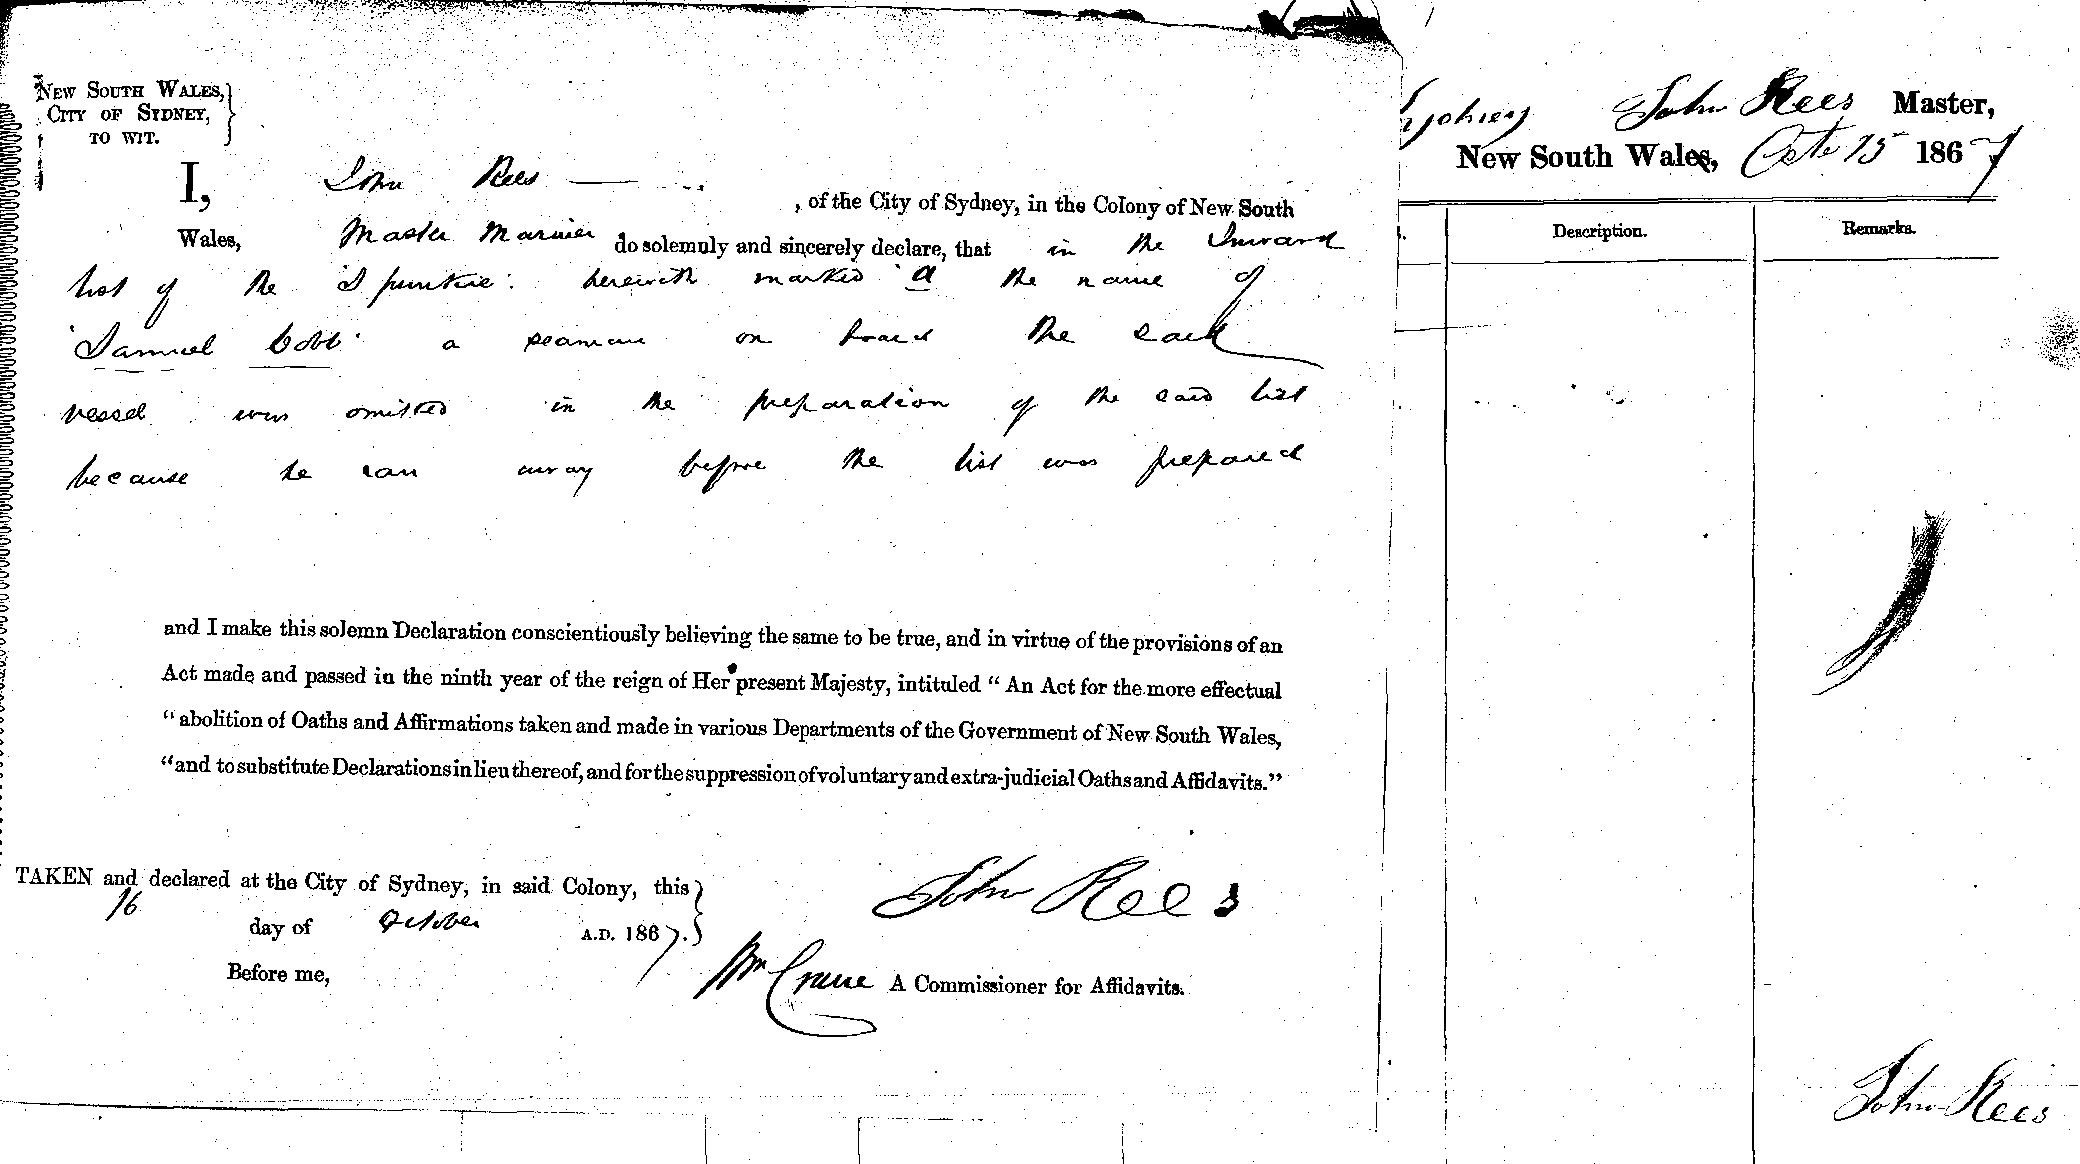 NEW SOUTH WALES,
CITY OF SYDNEY,
TO WIT.
I, John Rees , of the City of Sydney, in the Colony of New South
Wales, Master Mariner do solemnly and sincerely declare, that in the Inward
list of the herewith marked A the name of
"Samuel Cobb" a seaman on board the said
vessel was omitted in the preparation of the said list
because he ran away before the list was prepared
and I make this solemn Declaration conscientiously believing the same to be true, and in virtue of the provisions of an
Act made and passed in the ninth year of the reign of Her present Majesty, intituled " An Act for the more effectual
" abolition of Oaths and Affirmations taken and made in various Departments of the Government of New South Wales,
"and to substitute Declarations in lieu thereof, and for the suppression of voluntary and extra-judicial Oaths and Affidavits."
TAKEN and declared at the City of Sydney, in said Colony, this
16 day of October A.D. 1867.
John Rees
Before me,
Wm Crane A Commissioner for Affidavits.
Sydney John Rees Master,
New South Wales, Octr 15 1867
Description. Remarks.
John Rees